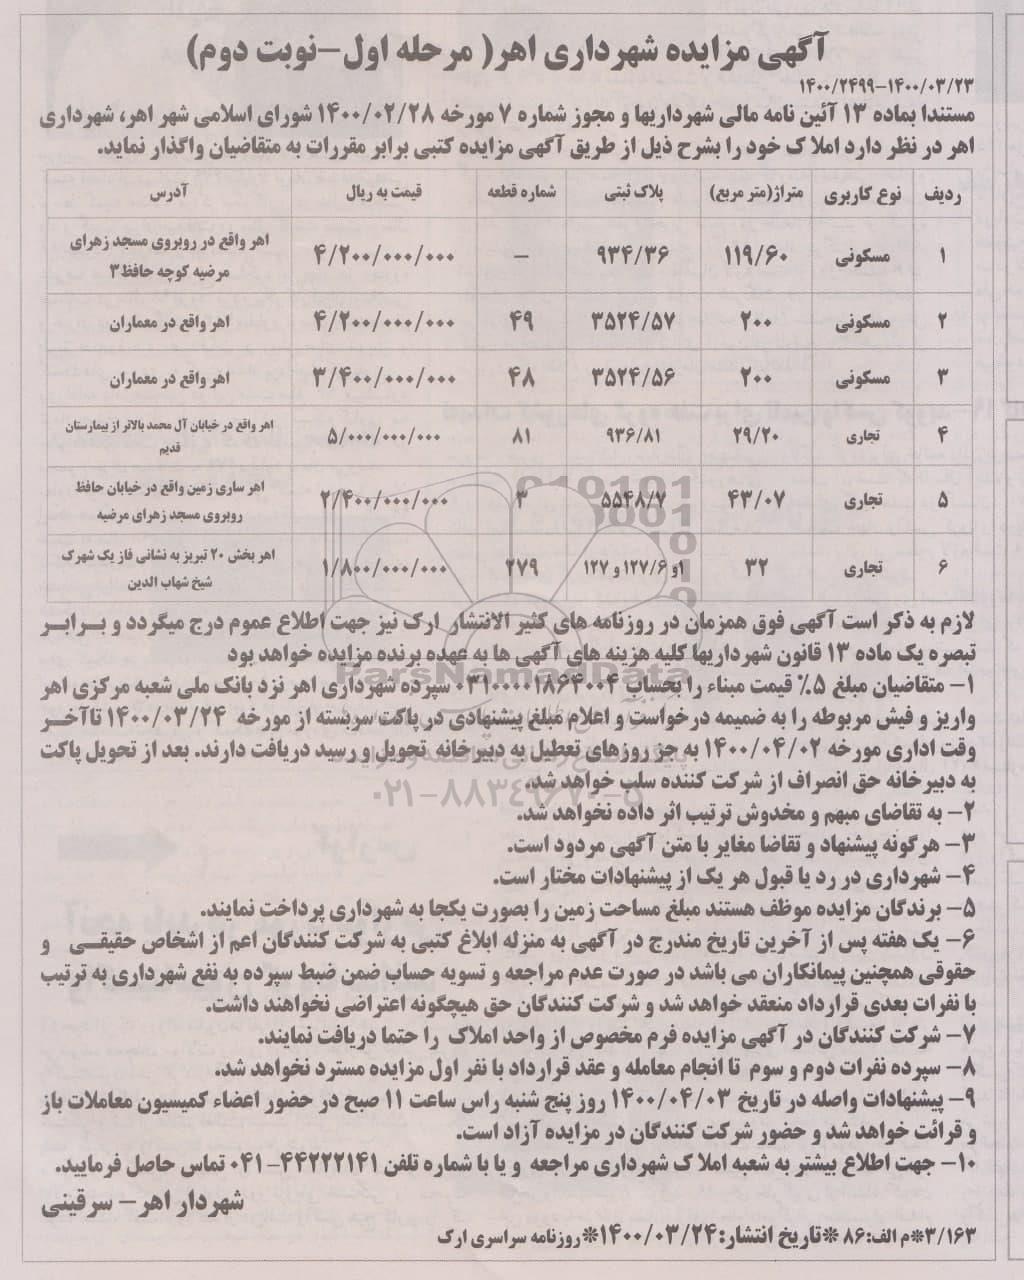 آگهی مزایده شهرداری اهر( مرحله اول-نوبت دوم)
۱۴۰۰/۲۴۹۹-۱۴۰۰/۰۳/۲۳
مستندا بماده ۱۳ آئین نامه مالی شهرداریها و مجوز شماره ۷ مورخه ۱۴۰۰/۰۲/۲۸ شورای اسلامی شهر اهر، شهرداری
اهر در نظر دارد املاک خود را بشرح ذیل از طریق آگهی مزایده کتبی برابر مقررات به متقاضیان واگذار نماید.
ردیف نوع کاربری متراژ(متر مربع) پلاک ثبتی شماره قطعه قیمت به ریال آدرس
۱ مسکونی ۱۱۹/۶۰ ۹۳۴/۳۶ - ۴/۲۰۰/۰۰۰/۰۰۰ اهر واقع در روبروی مسجد زهرای
مرضیه کوچه حافظ۳
۲ مسکونی ۲۰۰ ۳۵۲۴/۵۷ ۴۹ ۴/۲۰۰/۰۰۰/۰۰۰ اهر واقع در معماران
۳ مسکونی ۲۰۰ ۳۵۲۴/۵۶ ۴۸ ۳/۴۰۰/۰۰۰/۰۰۰ اهر واقع در معماران
۴ تجاری ۲۹/۲۰ ۹۳۶/۸۱ ۸۱ ۵/۰۰۰/۰۰۰/۰۰۰ اهر واقع در خیابان آل محمد بالاتر از بیمارستان
قدیم
۵ تجاری ۴۳/۰۷ ۵۵۴۸/۷ ۳ ۲/۴۰۰/۰۰۰/۰۰۰ اهر ساری زمین واقع در خیابان حافظ
روبروی مسجد زهرای مرضیه
۶ تجاری ۳۲ ۱و ۱۲۷/۶ و ۱۲۷ ۲۷۹ ۱/۸۰۰/۰۰۰/۰۰۰ اهر بخش ۲۰ تبریز به نشانی فاز یک شهرک
شیخ شهاب الدین
لازم به ذکر است آگهی فوق همزمان در روزنامه های کثیر الانتشار ارک نیز جهت اطلاع عموم درج میگردد و برابر
تبصره یک ماده ۱۳ قانون شهرداریها کلیه هزینه های آگهی ها به عهده برنده مزایده خواهد بود
۱- متقاضیان مبلغ ۵٪ قیمت مبناء را بحساب ۰۳۱۰۰۰۰۱۸۶۴۰۰۴ سپرده شهرداری اهر نزد بانک ملی شعبه مرکزی اهر
واریز و فیش مربوطه را به ضمیمه درخواست و اعلام مبلغ پیشنهادی در پاکت سربسته از مورخه ۱۴۰۰/۰۳/۲۴ تاآخر
وقت اداری مورخه ۱۴۰۰/۰۴/۰۲ به جز روزهای تعطیل به دبیرخانه تحویل و رسید دریافت دارند. بعد از تحویل پاکت
به دبیرخانه حق انصراف از شرکت کننده سلب خواهد شد.
۲- به تقاضای مبهم و مخدوش ترتیب اثر داده نخواهد شد.
۳- هرگونه پیشنهاد و تقاضا مغایر با متن آگهی مردود است.
۴- شهرداری در رد یا قبول هر یک از پیشنهادات مختار است.
۵- برندگان مزایده موظف هستند مبلغ مساحت زمین را بصورت یکجا به شهرداری پرداخت نمایند.
۶- یک هفته پس از آخرین تاریخ مندرج در آگهی به منزله ابلاغ کتبی به شرکت کنندگان اعم از اشخاص حقیقی و
حقوقی همچنین پیمانکاران می باشد در صورت عدم مراجعه و تسویه حساب ضمن ضبط سپرده به نفع شهرداری به ترتیب
با نفرات بعدی قرارداد منعقد خواهد شد و شرکت کنندگان حق هیچگونه اعتراضی نخواهند داشت.
۷- شرکت کنندگان در آگهی مزایده فرم مخصوص از واحد املاک را حتما دریافت نمایند.
۸- سپرده نفرات دوم و سوم تا انجام معامله و عقد قرارداد با نفر اول مزایده مسترد نخواهد شد.
۹- پیشنهادات واصله در تاریخ ۱۴۰۰/۰۴/۰۳ روز پنج شنبه راس ساعت ۱۱ صبح در حضور اعضاء کمیسیون معاملات باز
و قرائت خواهد شد و حضور شرکت کنندگان در مزایده آزاد است.
۱۰- جهت اطلاع بیشتر به شعبه املاک شهرداری مراجعه و یا با شماره تلفن ۴۴۲۲۲۱۴۱-۰۴۱ تماس حاصل فرمایید.
شهردار اهر - سرقینی
۳/۱۶۳*م الف:۸۶ *تاریخ انتشار:۱۴۰۰/۰۳/۲۴*روزنامه سراسری ارک
ParsNamadData
۰۲۱-۸۸۳۴۹۶۷۰-۵